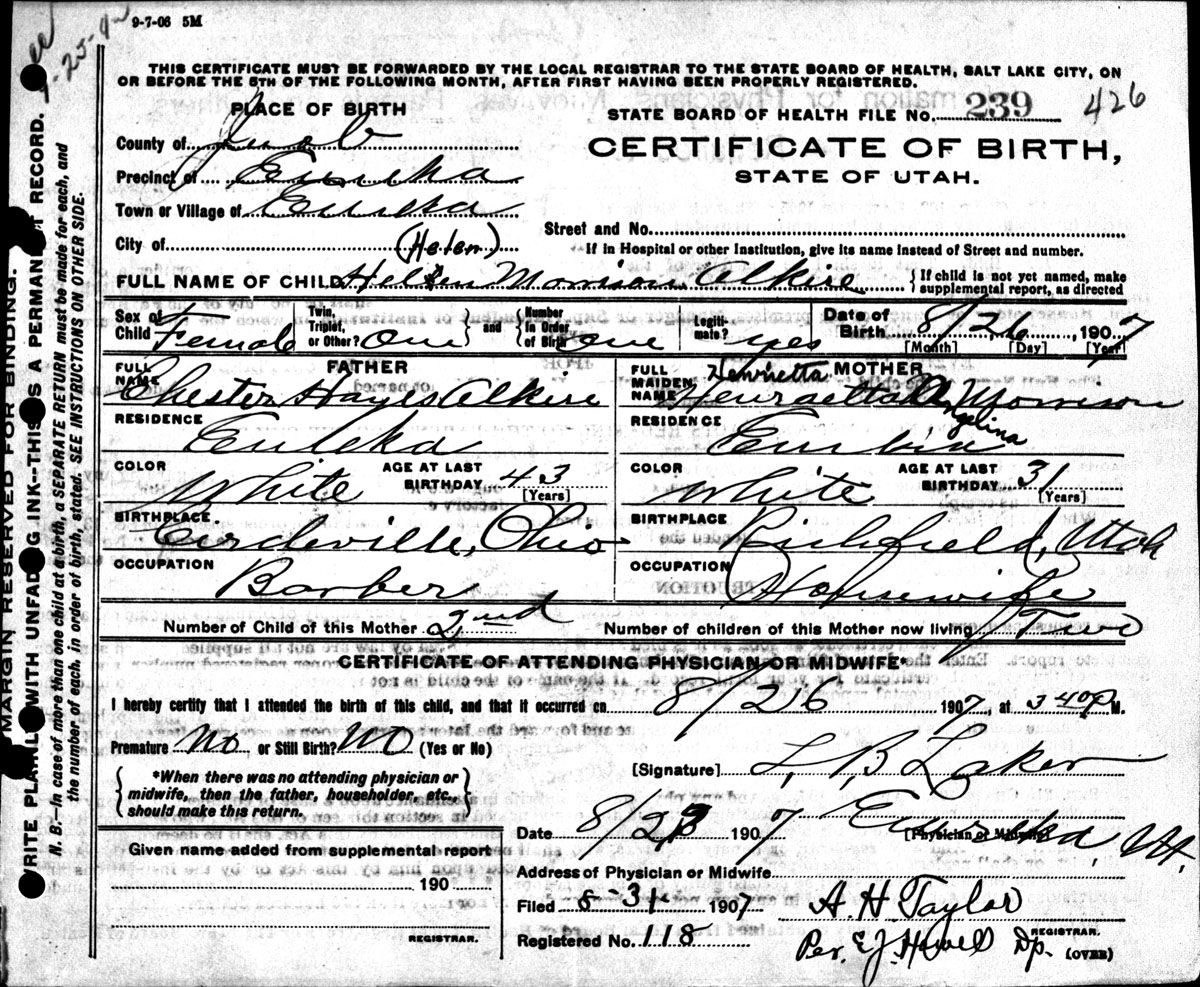 9-7-06 5M
THIS CERTIFICATE MUST BE FORWARDED BY THE LOCAL REGISTRAR TO THE STATE BOARD OF HEALTH, SALT LAKE CITY, ON
OR BEFORE THE 5TH OF THE FOLLOWING MONTH, AFTER FIRST HAVING BEEN PROPERLY REGISTERED.
PLACE OF BIRTH
STATE BOARD OF HEALTH FILE NO. 239 426
County of Juab
CERTIFICATE OF BIRTH,
STATE OF UTAH.
Precinct of Eureka
Town or Village of Eureka
Street and No.
City of (Helen)
If in Hospital or other Institution, give its name instead of Street and number.
FULL NAME OF CHILD Helen Morrison Alkire { If child is not yet named, make
supplemental report, as directed
Sex of Child Female
Twin, Triplet, or Other? One } and { Number in Order of Birth one
Legitimate? yes
Date of Birth 8/26, 1907
[Month] [Day] [Year]
FATHER
FULL NAME Chester Hayes Alkire
RESIDENCE Eureka
COLOR White
AGE AT LAST BIRTHDAY 43 [Years]
BIRTHPLACE. Circleville, Ohio
OCCUPATION Barber
MOTHER
Henrietta
FULL MAIDEN NAME Henraetta Morrison
Angelina
RESIDENCE
COLOR White
AGE AT LAST BIRTHDAY 31 [Years]
BIRTHPLACE Richfield, Utah
OCCUPATION Housewife
Number of Child of this Mother 2nd
Number of children of this Mother now living Two
CERTIFICATE OF ATTENDING PHYSICIAN OR MIDWIFE*
I hereby certify that I attended the birth of this child, and that it occurred on 8/26 1907, at 3 40 P M.
Premature No or Still Birth? No (Yes or No)
{ *When there was no attending physician or
midwife, then the father, householder, etc.,
should make this return. }
[Signature] L. B. Laker
[Physician or Midwife]
Date 8/28 1907 Eureka, Ut.
Given name added from supplemental report
190
REGISTRAR.
Address of Physician or Midwife
Filed 8-31- 1907 A. H. Taylor
REGISTRAR.
Registered No. 118 Per. E. J. Howell Dp. (OVER)
MARGIN RESERVED FOR BINDING.
WRITE PLAINLY WITH UNFADING INK--THIS IS A PERMANENT RECORD.
N. B.—In case of more than one child at a birth, a SEPARATE RETURN must be made for each, and
the number of each, in order of birth, stated. SEE INSTRUCTIONS ON OTHER SIDE.